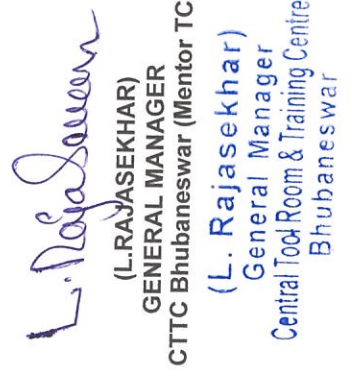 L. Rajasekhar
(L.RAJASEKHAR)
GENERAL MANAGER
CTTC Bhubaneswar (Mentor TC
(L. Rajasekhar)
General Manager
Central Tool Room & Training Centre
Bhubaneswar